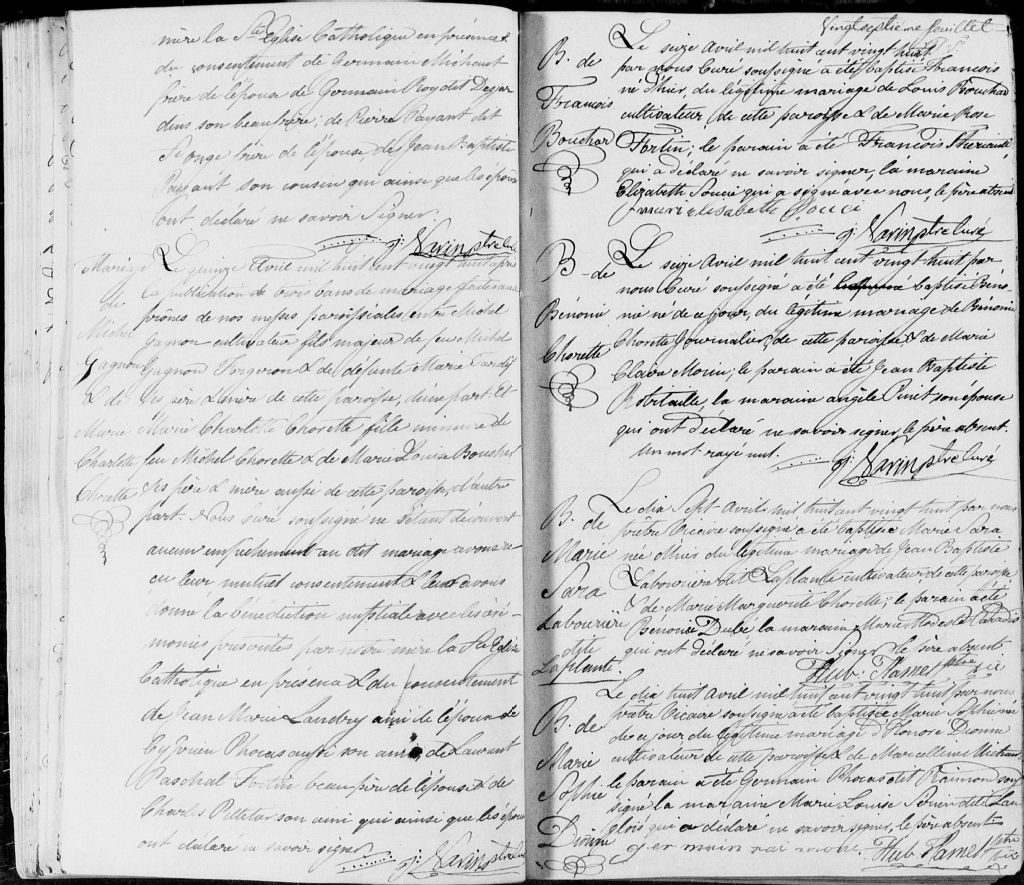 mère la Ste Eglise Catholique en présence &
du consentement de Germain Michaut
frère de l'épouse de Germain Roy dit Desjar
dins son beaufrère; de Pierre Payant dit
St onge frère de l'épouse, de Jean Baptiste
Payant son cousin qui ainsi que les époux
ont déclaré ne savoir Signer.
J: Varin ptre curé
Mariage
de
Michel
Gagnon
& de
Marie
Charlotte
Chorette
Le quinze Avril mil huit cent vingt huit après
la publication de trois bans de mariage faite aux
prônes de nos messes paroissiales, entre Michel
Gagnon cultivateur fils majeur de feu Michel
Gagnon Forgeron & de défunte Marie Tardif
ses père & mère de cette paroisse, d'une part. Et
Marie Charlotte Chorette fille mineure de
feu Michel Chorette & de Marie Louise Boucher
ses père & mère aussi de cette paroisse, d'autre
part. Nous curé soussigné ne s'étant découvert
aucun empêchement au dit mariage avons re
çu leur mutuel consentement & leur avons
donné la bénédiction nuptiale avec les céré-
monies prescrites par notre mère la Ste Eglise
Catholique en présence & du consentement
de Jean Marie Landry ami de l'époux de
Cyprien Phocas aussi son ami, de Laurent
Paschal Fortin beau père de l'épouse & de
Charles Pelletier son ami qui ainsi que les époux
ont déclaré ne savoir signer
J: Varin ptre curé
Vingt septième feuillet
B. de
François
Bouchar
Le seize Avril mil huit cent vingt huit
par nous Curé soussigné a été baptisé François
né d'hier, du légitime mariage de Louis Bouchar
cultivateur de cette paroisse & de Marie Rose
Fortin; le parain a été François Theriault
qui a déclaré ne savoir signer, la maraine
Elizabeth Soucie qui a signé avec nous, le père absent
marie elisabeth Souci
J: Varin ptre Curé
B- de
Bénonie
Chorette
Le seize Avril mil huit cent vingt huit par
nous Curé soussigné a été baptisé Béno-
nie né de ce jour, du légitime mariage de Bénonie
Chorette Journalier, de cette paroisse & de Marie
Claire Morin; le parain a été Jean Baptiste
Robitaille, la maraine angèle Pinet son épouse
qui ont déclaré ne savoir signer, le père absent.
Un mot rayé nul.
J: Varin ptre Curé
B. de
Marie
Sara
Labourière
dite
Laplante
Le dix Sept Avril mil huit cent vingt huit par nous
prêtre Vicaire soussigné a été baptisée Marie Sara
née d'hier du légitime mariage de Jean Baptiste
Labourière dit Laplante cultivateur de cette paroisse
& de Marie Marguerite Chorette; le parain a été
Bénonie Dubé la maraine Marie Modeste Paradis
qui ont déclaré ne savoir Signer, le père absent
Hub. Hamel ptre Vic
B. de
Marie
Sophie
Dionne
Le dix huit Avril mil huit cent vingt huit par nous
prêtre Vicaire soussigné a été baptisée Marie Sophie née
de ce jour du légitime mariage d'Honoré Dionne
cultivateur de cette paroisse & de Marcelline Michaud
le parain a été Germain Phocas dit Raimond sous
signé la maraine Marie Louise
qui a déclaré ne savoir signer, le père absent
germain
Hub. Hamel ptre Vic